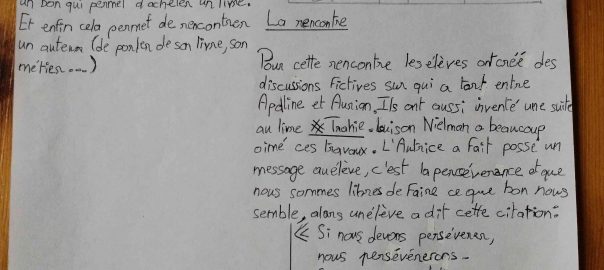 un bon qui permet d'acheter un livre.
Et enfin cela permet de rencontrer
un auteur (de parler de son livre, son
métier....)
La rencontre
Pour cette rencontre les élèves ont créé des
discussions fictives sur qui a tort entre
Apolline et Aurian. Ils ont aussi inventé une suite
au livre Trahie. Louison Nielman a beaucoup
aimé ces travaux. L'Autrice a fait passé un
message au élève, c'est la persévérance et que
nous sommes libres de faire ce que bon nous
semble, alors un élève a dit cette citation:
« Si nous devons persévérer,
nous persévérerons -